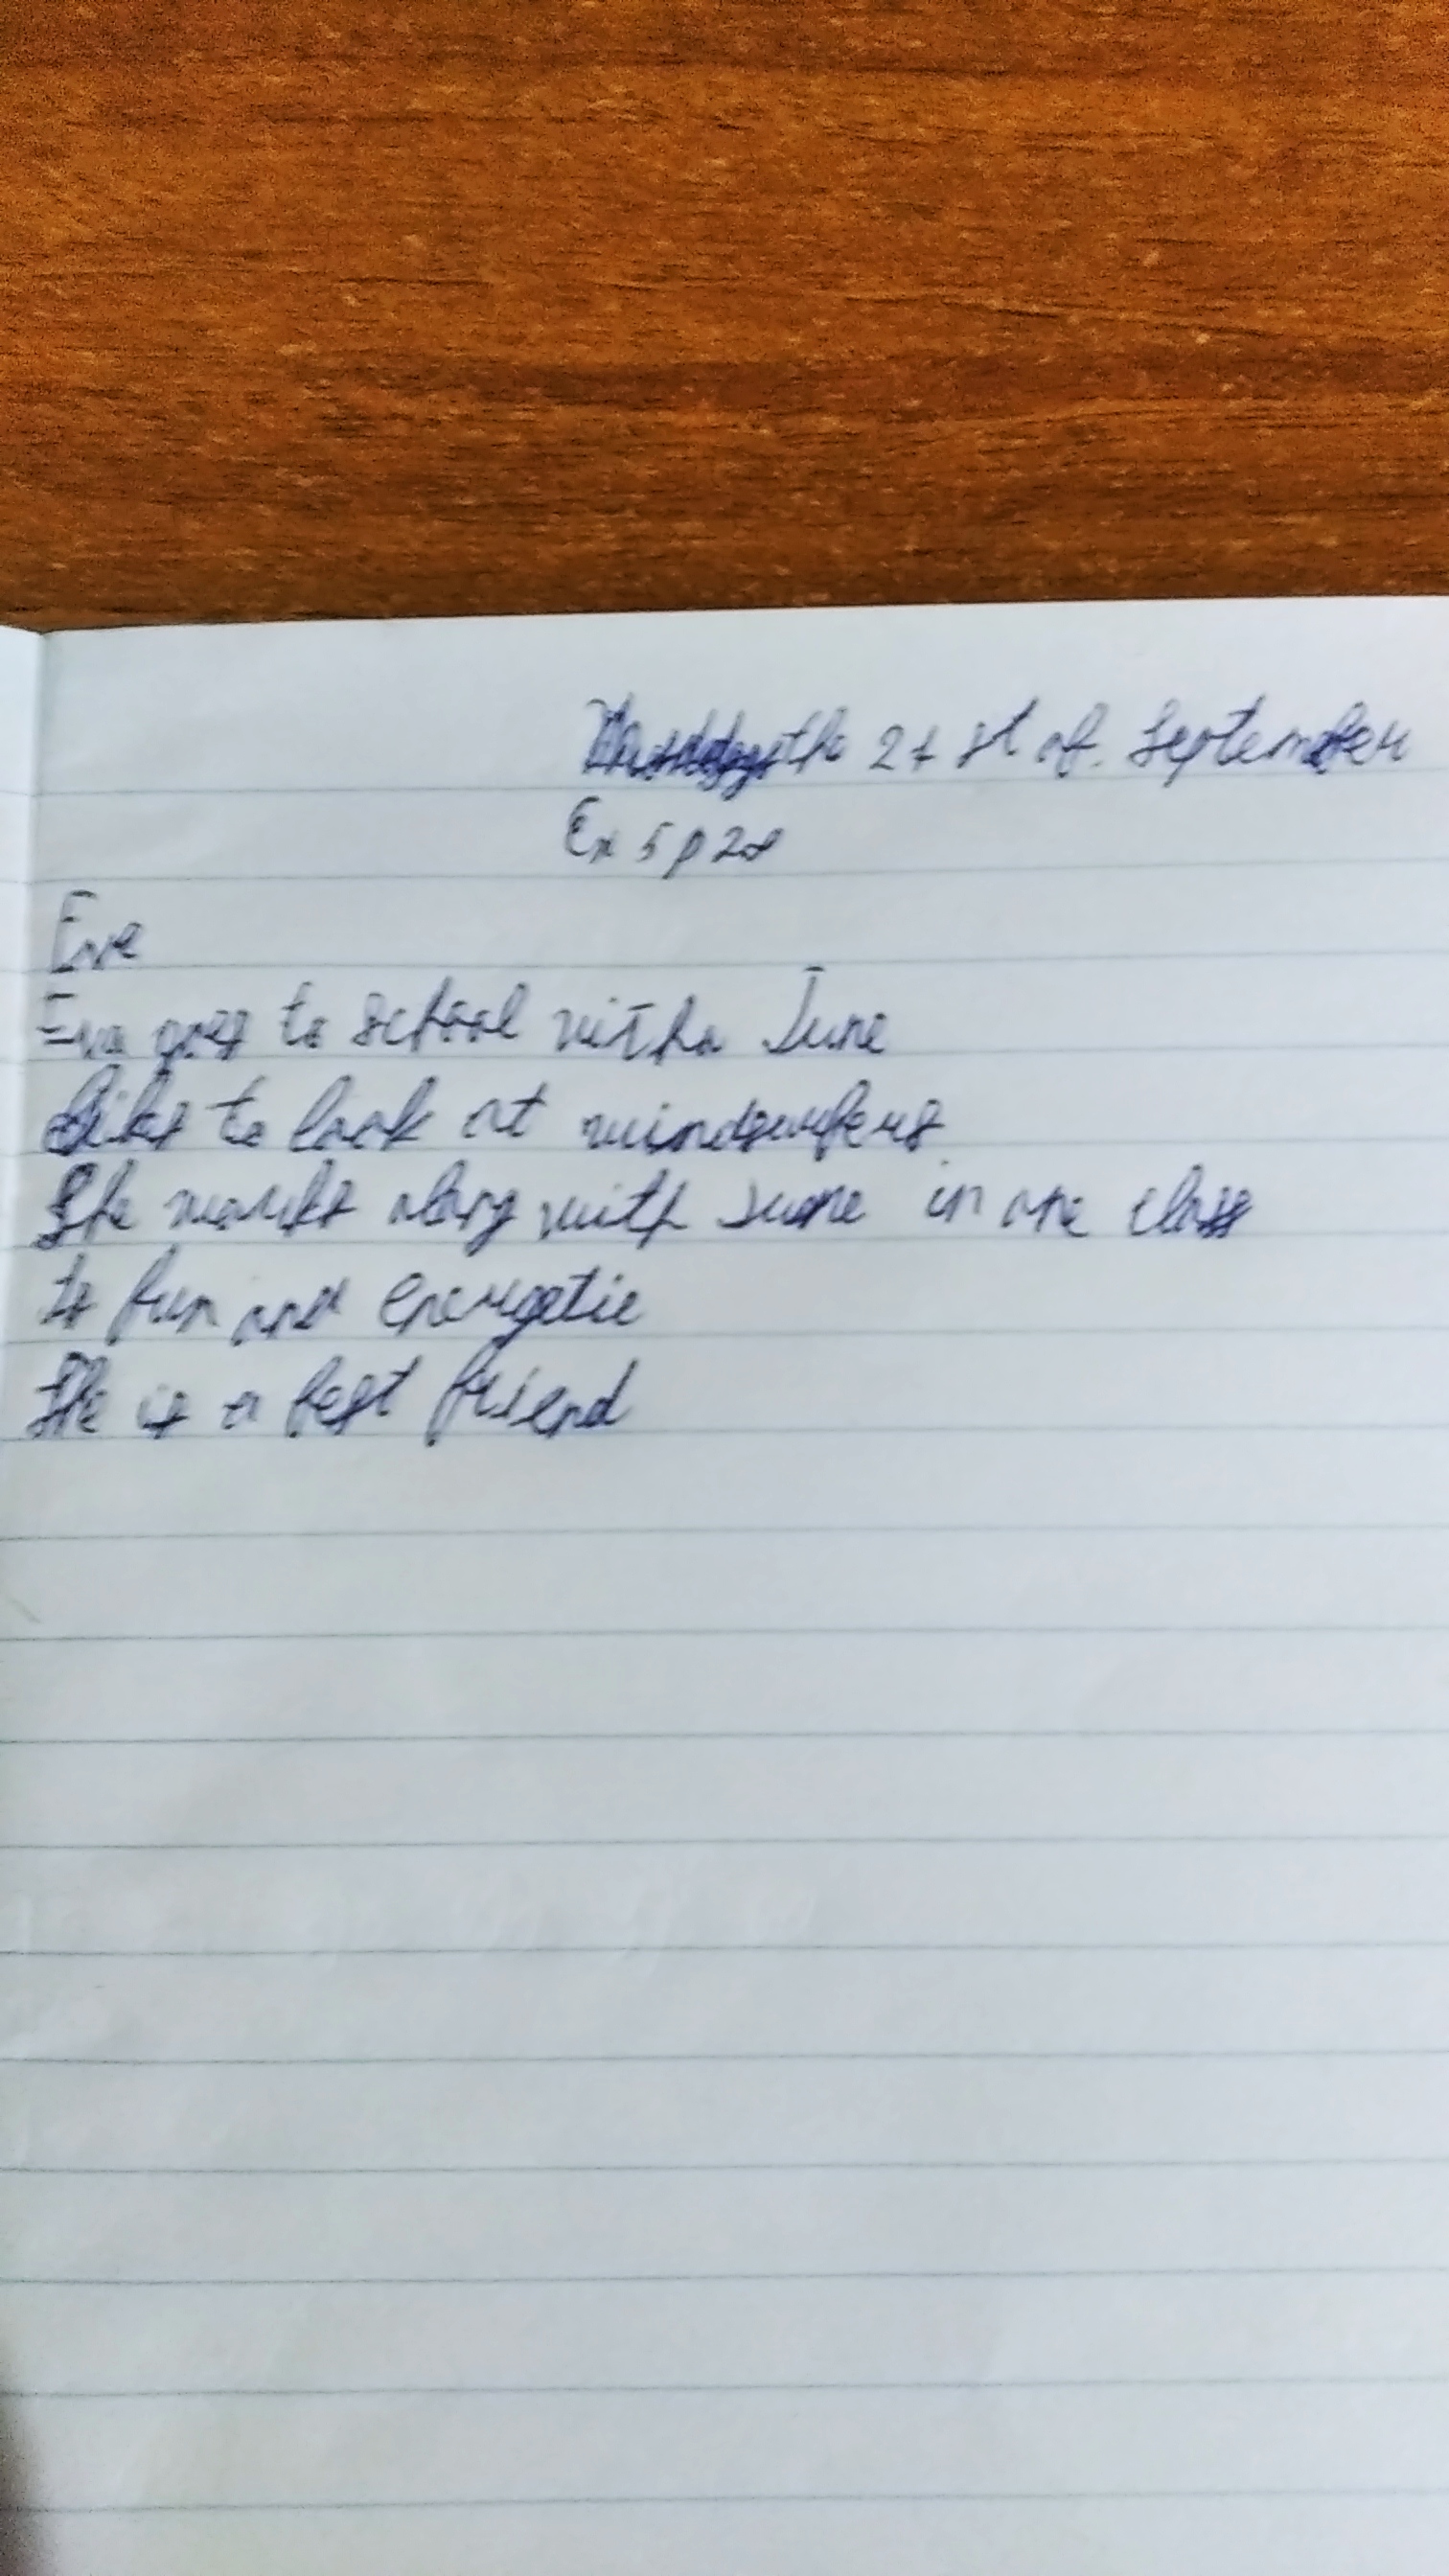 the 21 st of September
Ex 5 p 28
Eve
Eve goes to school with June
Likes to look at windsurfers
She works along with June in one class
Is fun and energetic
She is a best friend